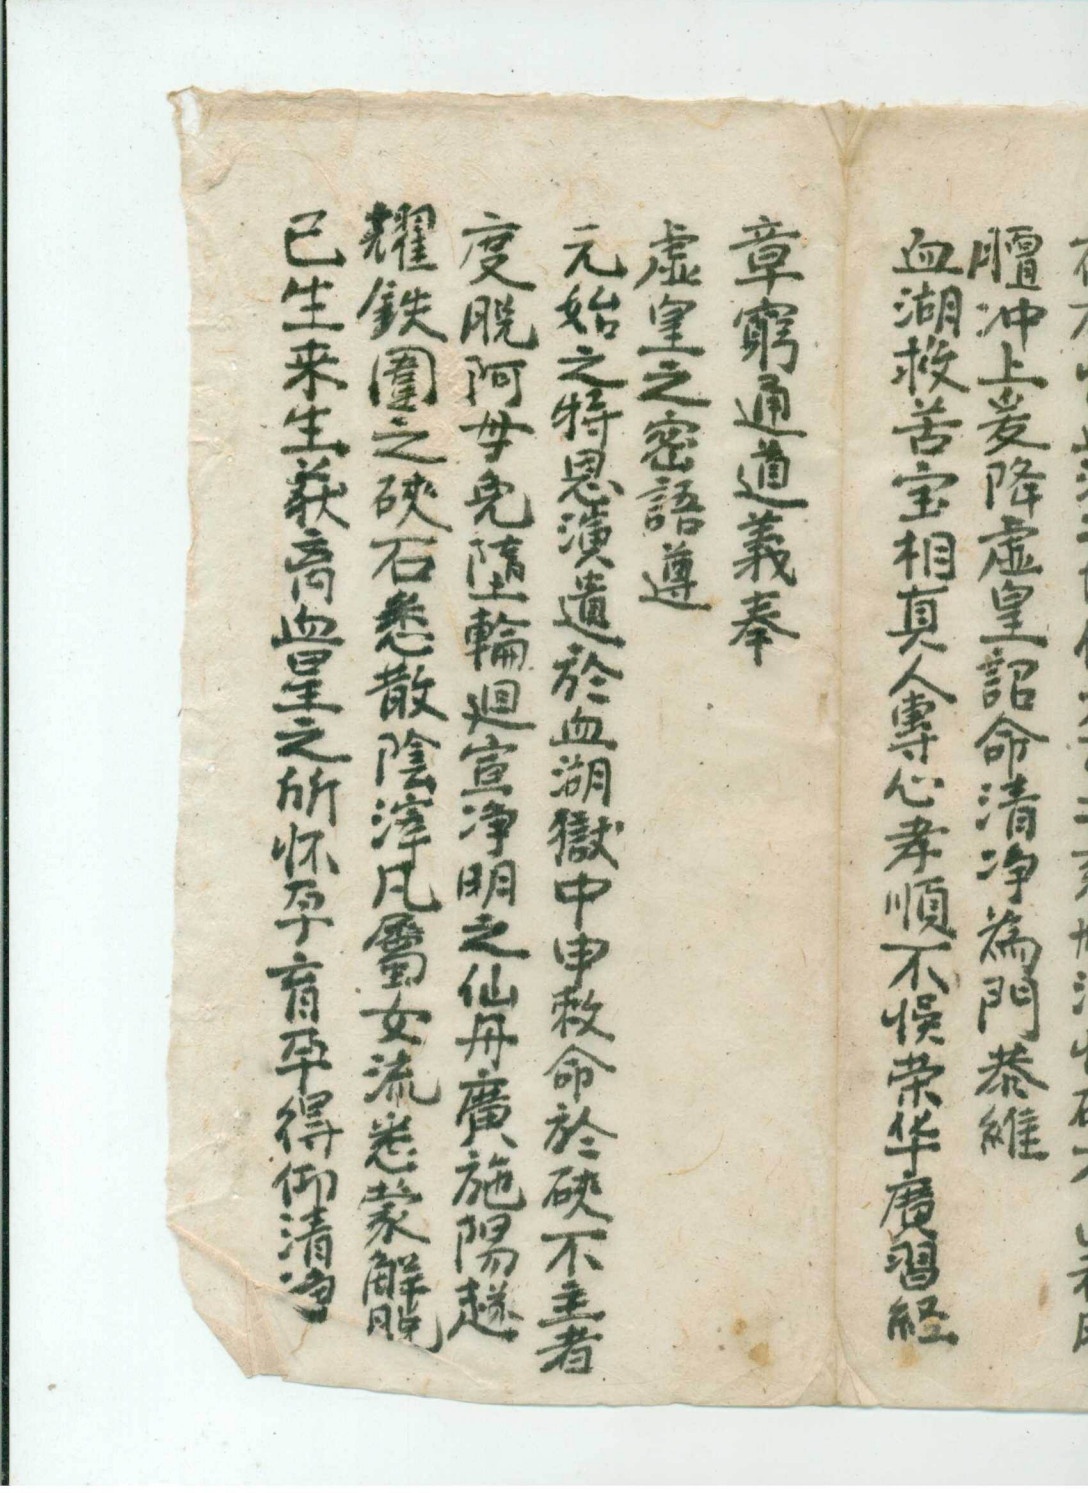 膻冲上爰降虛皇詔命清净為門恭維
血湖救苦宝相真人專心孝順不悞荣华廣習経
章窮通道義奉
虛皇之密語遵
元始之特恩演遺於血湖獄中申救命於硤不主者
度脫阿母免墮輪迴宣净明之仙丹廣施陽
耀鉄圍之硤石悉散陰滓凡屬女流悉蒙解脫
已生来生获离血星之所怀孕育孕得仰清净